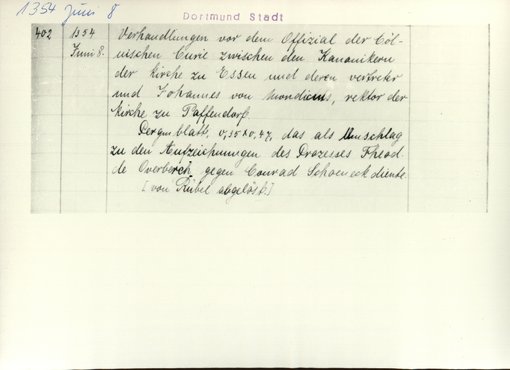 1354 Juni 8
Dortmund Stadt
402 1354 Verhandlungen vor dem Offizial der Cöl-
Juni 8. nischen Curie zwischen den Kanonikern
der Kirche zu Essen und deren vertreter
und Johannes von, rektor der
Kirche zu Paffendorf.
Pergm blatt, 0,35x0,47, das als Umschlag
zu den Aufzeichnungen des Prozesses Theod.
de Overberch gegen Conrad Schoeneck diente
[von Rübel abgelöst.]